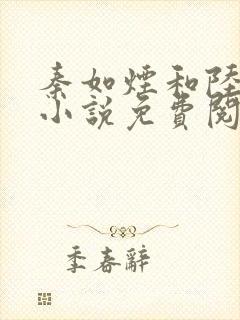 秦如煙和陸
小說免費閱
季春辭